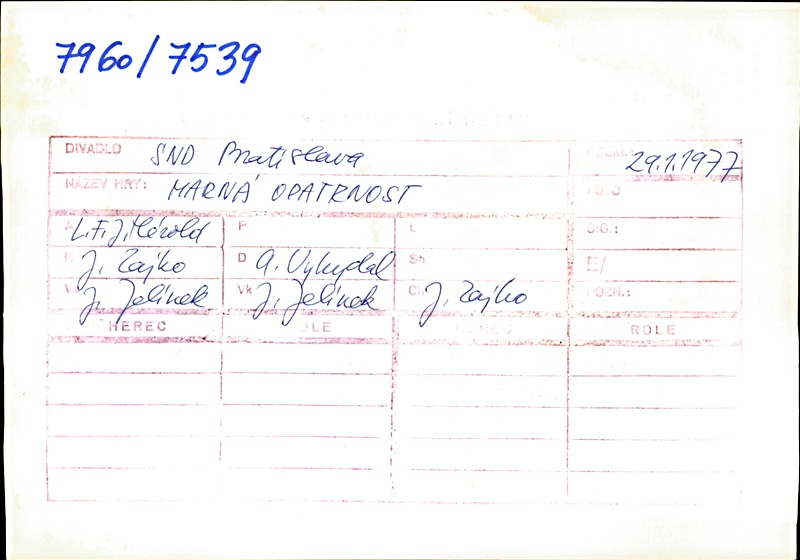 7960/7539
DIVADLO SND Bratislava 29.1.1977
NÁZEV HRY: MARNÁ OPATRNOST
L.F.J. Hérold P L S.G.:
J. Zajko D A. Vykydal Sh E/
J. Jelínek Vk J. Jelínek Ch J. Zajko POZN.:
HEREC ROLE HEREC ROLE